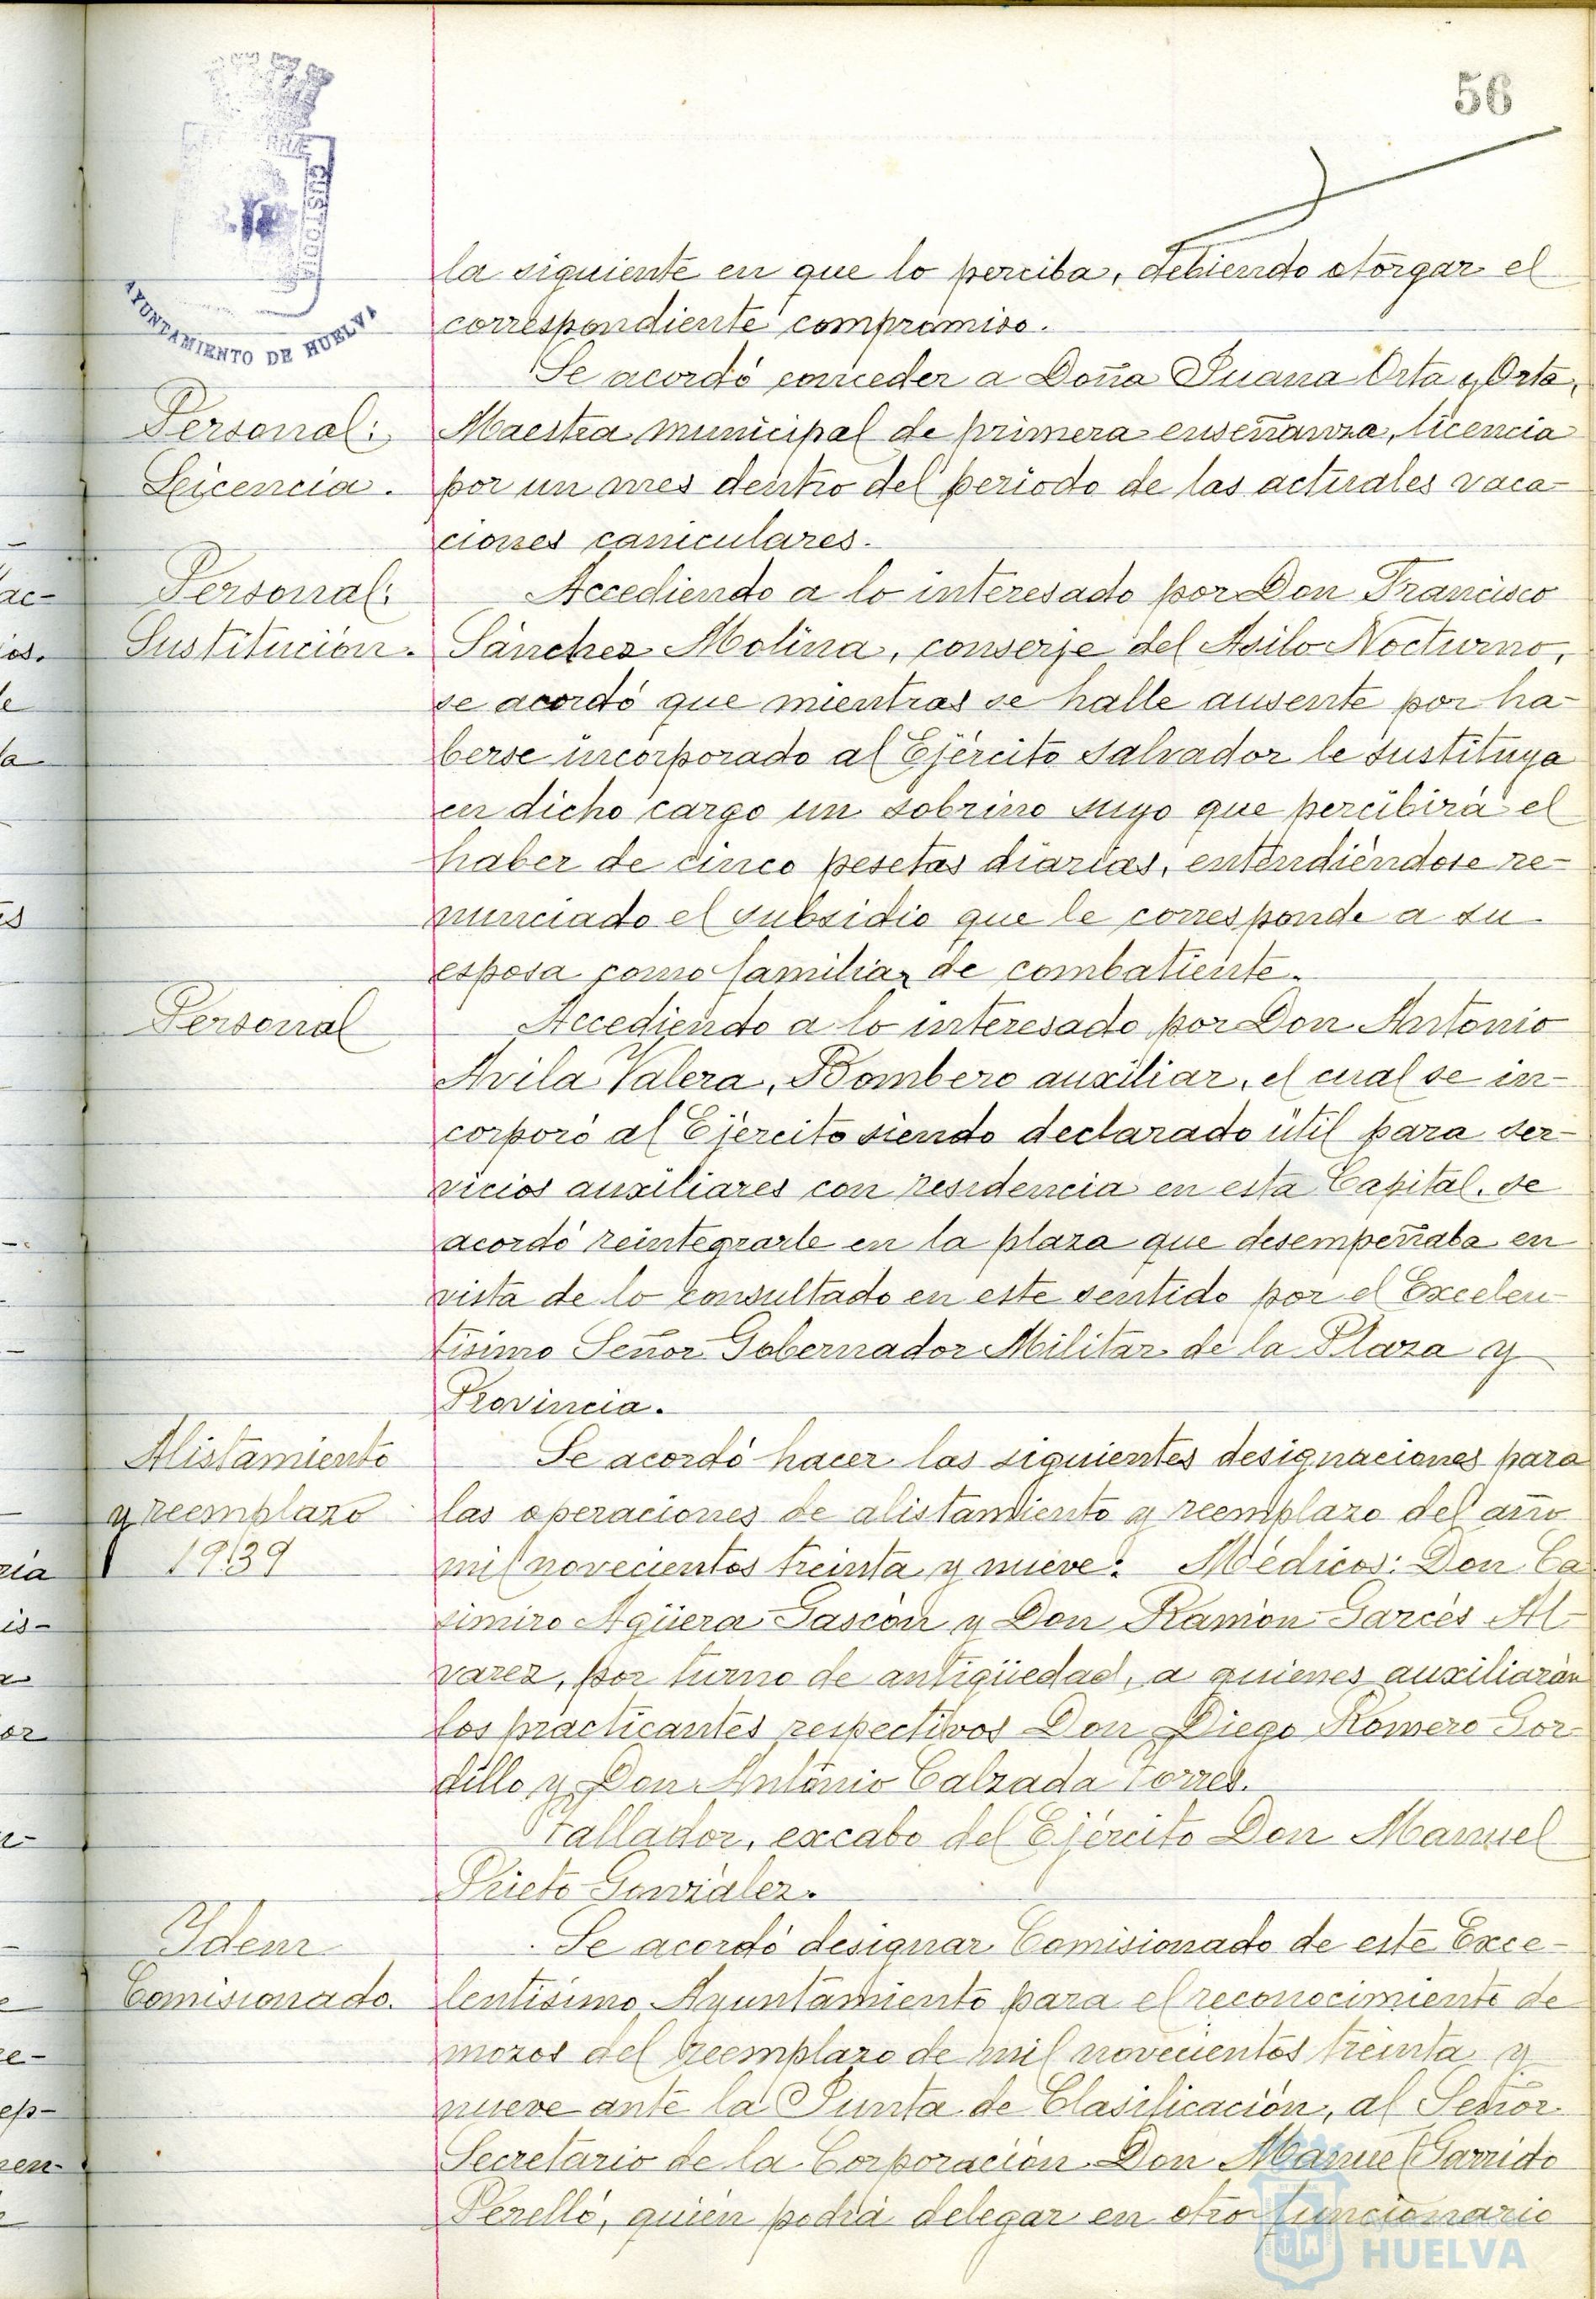 56
CUSTODIA
AYUNTAMIENTO DE HUELVA
la siguiente en que lo perciba, debiendo otorgar el
correspondiente compromiso.
Personal:
Licencia.
Se acordó conceder a Doña Juana Orta y Orta,
Maestra municipal de primera enseñanza, licencia
por un mes dentro del periodo de las actuales vaca-
ciones caniculares.
Personal:
Sustitución.
Accediendo a lo interesado por Don Francisco
Sánchez Molina, conserje del Asilo Nocturno,
se acordó que mientras se halle ausente por ha-
berse incorporado al Ejército Salvador le sustituya
en dicho cargo un sobrino suyo que percibirá el
haber de cinco pesetas diarias, entendiéndose re-
nunciado el subsidio que le corresponde a su
esposa como familiar de combatiente.
Personal
Accediendo a lo interesado por Don Antonio
Avila Valera, Bombero auxiliar, el cual se in-
corporó al Ejército siendo declarado útil para ser-
vicios auxiliares con residencia en esta Capital, se
acordó reintegrarle en la plaza que desempeñaba en
vista de lo consultado en este sentido por el Excelen-
tísimo Señor Gobernador Militar de la Plaza y
Provincia.
Alistamiento
y reemplazo
1939
Se acordó hacer las siguientes designaciones para
las operaciones de alistamiento y reemplazo del año
mil novecientos treinta y nueve: Médicos: Don Ca
simiro Agüera Gascón y Don Ramón Garcés Al-
varez, por turno de antigüedad, a quienes auxiliarán
los practicantes respectivos Don Diego Romero Gor-
dillo y Don Antonio Calzada Torres.
Tallador, excabo del Ejército Don Manuel
Prieto González.
Idem
Comisionado.
Se acordó designar Comisionado de este Exce-
lentísimo Ayuntamiento para el reconocimiento de
mozos del reemplazo de mil novecientos treinta y
nueve ante la Junta de Clasificación, al Señor
Secretario de la Corporación Don Manuel Garrido
Perelló, quién podrá delegar en otro funcionario
Ayuntamiento de
HUELVA